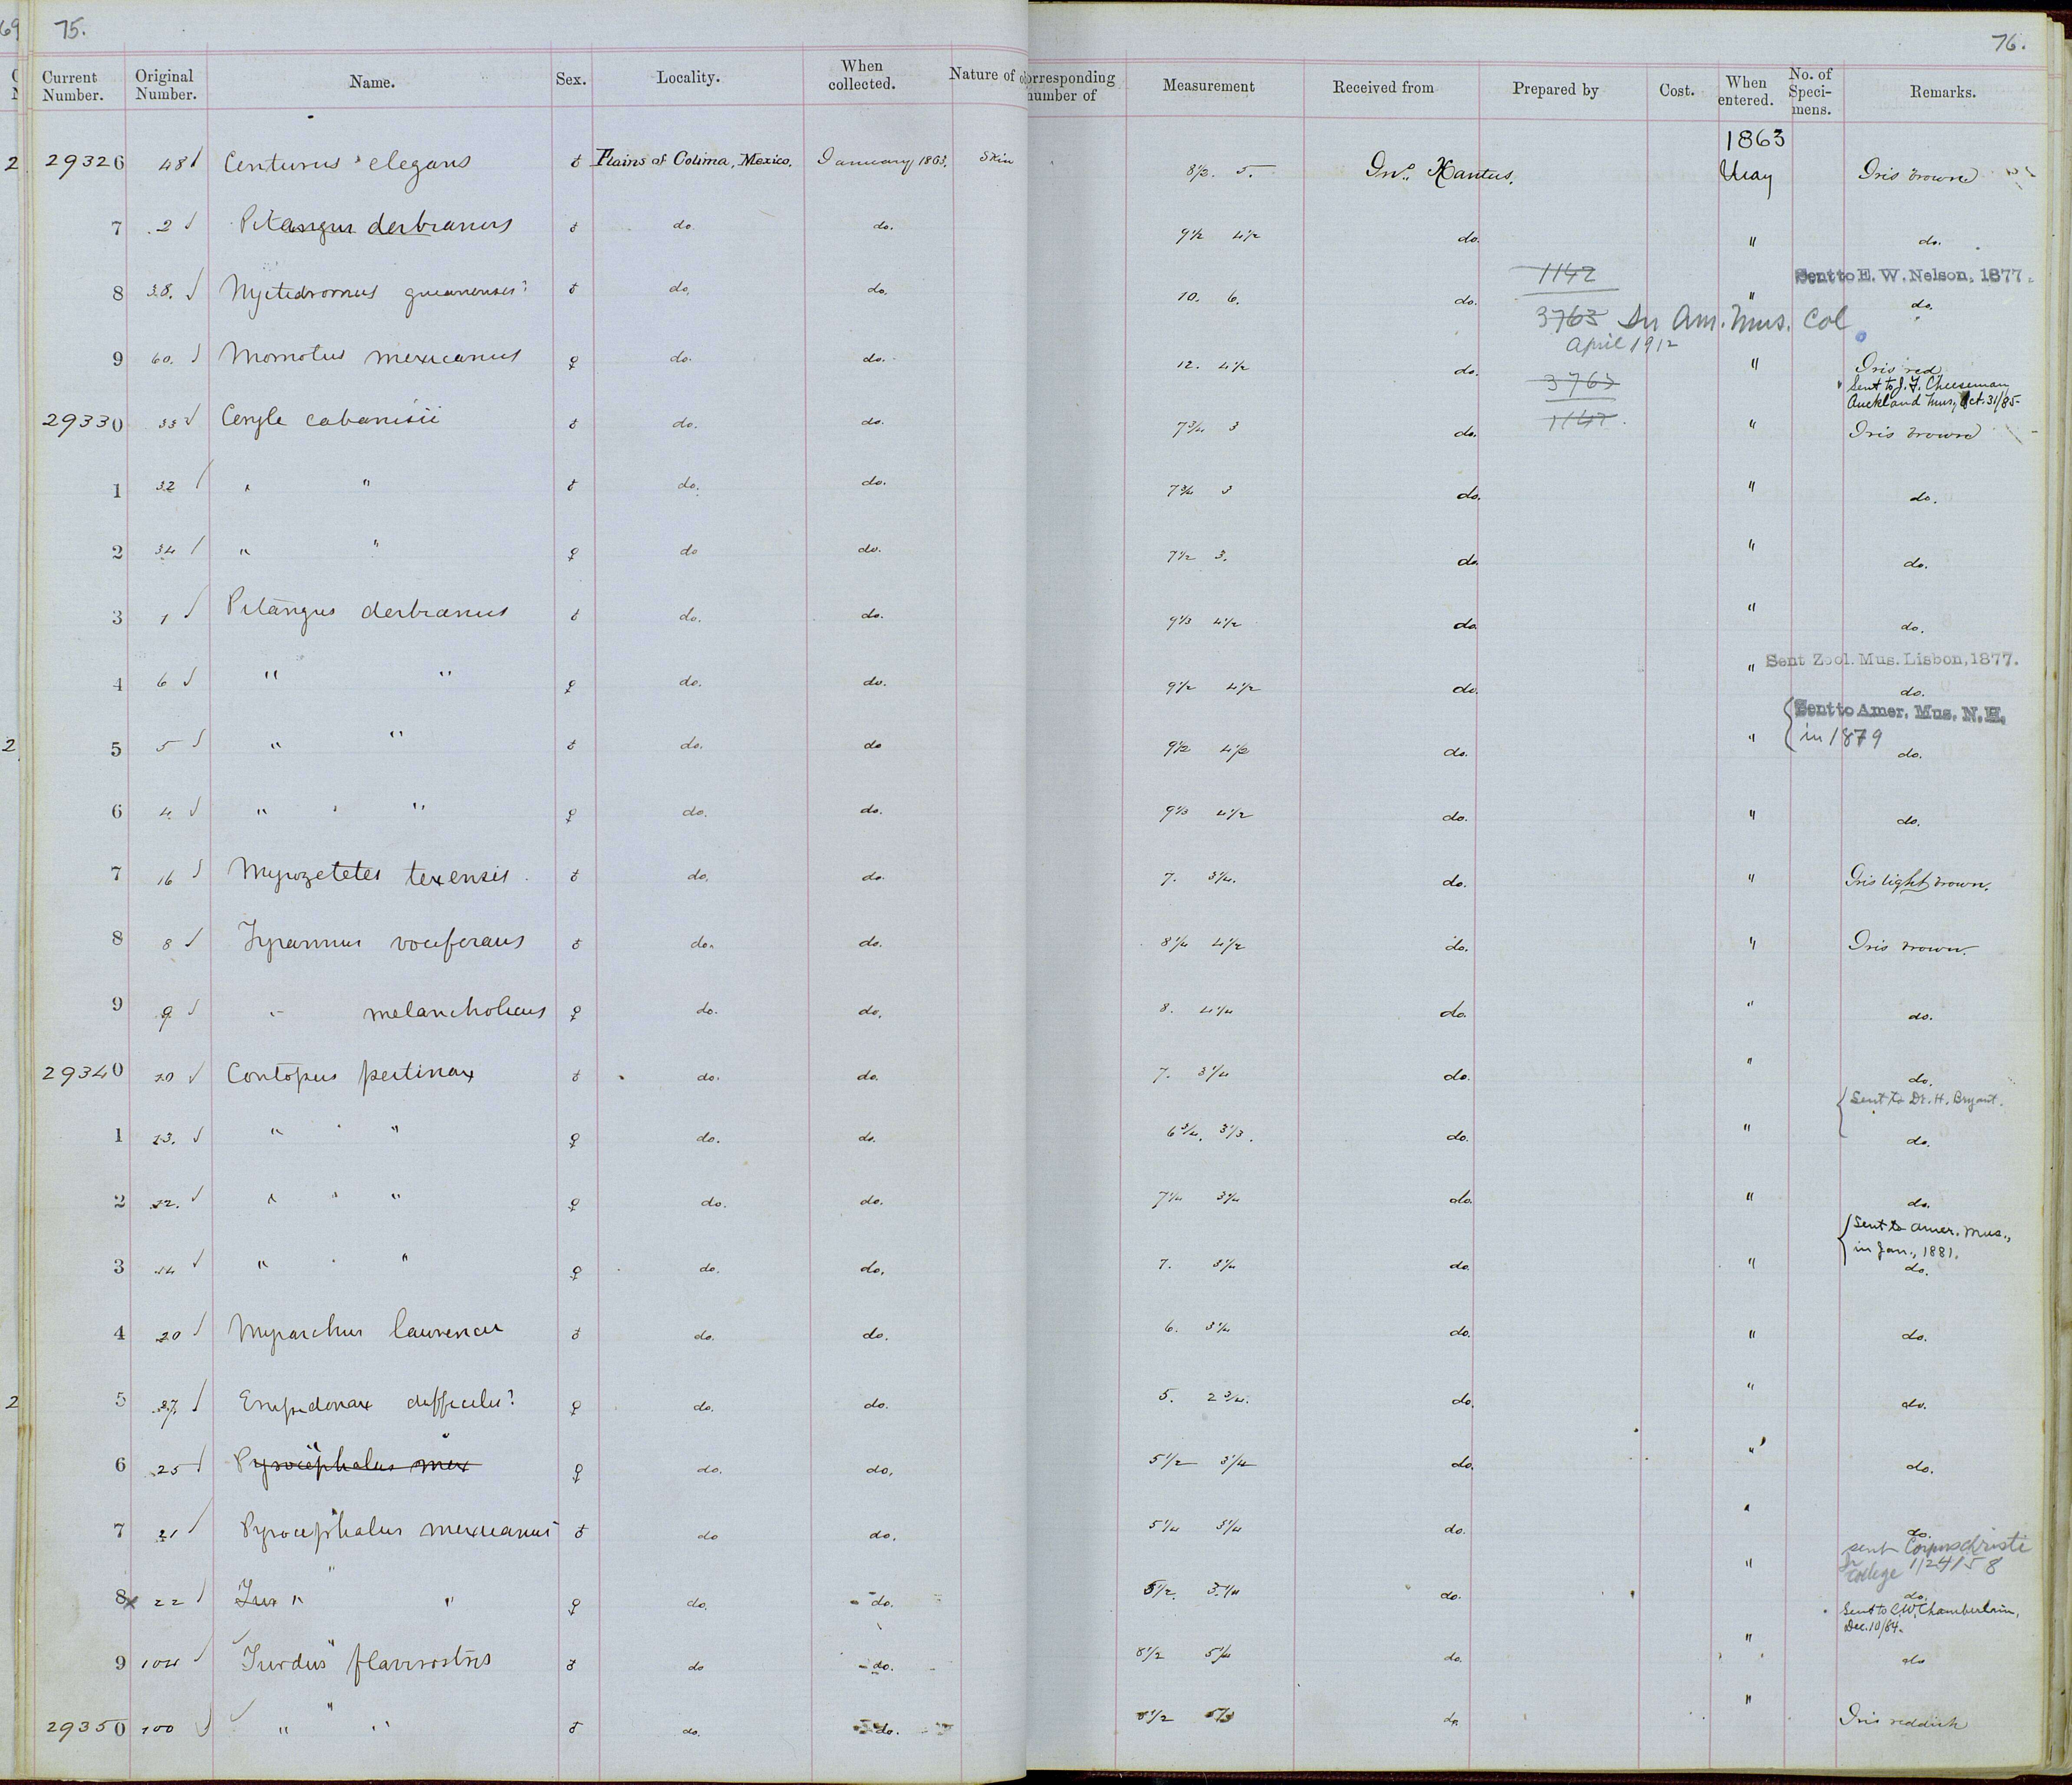 75.
76.
Current Number. Original Number. Name. Sex. Locality. When collected. Nature of orresponding number of Measurement Received from Prepared by Cost. When entered. No. of Speci-mens. Remarks.
1863
29326 48 Centurus elegans ♂ Plains of Colima, Mexico. January 1863. Skin 8 1/3. 5. Jno. Xantus. May Iris brown
7 2 Pitangus derbianus ♂ do. do. 9 1/2 4 1/2 do. " do.
1142 Sent to E. W. Nelson, 1877.
8 38. Nyctidromus guianensis? ♂ do. do. 10. 6. do. " do.
3763 In Am. Mus. Col
April 1912
9 60. Momotus mexicanus ♀ do. do. 12. 4 1/2 do. " Iris red
3763 Sent to J. F. Cheeseman
Auckland Mus, Oct. 31/85.
29330 33 Ceryle cabanisii ♂ do. do. 7 3/4 3 do. 1142 " Iris brown
1 32 " " ♂ do. do. 7 3/4 3 do. " do.
2 34 " " ♀ do do. 7 1/2 3. do. " do.
3 1 Pitangus derbianus ♂ do. do. 9 1/3 4 1/2 do. " do.
Sent Zool. Mus. Lisbon, 1877.
4 6 " " ♀ do. do. 9 1/2 4 1/2 do. " do.
Sent to Amer. Mus. N. H.
in 1879
5 5 " " ♂ do. do 9 1/2 4 1/2 do. " do.
6 4. " " ♀ do. do. 9 1/3 4 1/2 do. " do.
7 16 Myiozetetes texensis. ♂ do. do. 7. 3 3/4. do. " Iris light brown.
8 8 Tyrannus vociferans ♂ do. do. 8 1/4 4 1/2 do. " Iris brown.
9 9 " melancholicus ♀ do. do. 8. 4 1/4 do. " do.
29340 10 Contopus pertinax ♂ do. do. 7. 3 1/4 do. " do.
Sent to Dr. H. Bryant.
1 13. " " ♀ do. do. 6 3/4. 3 1/3. do. " do.
2 12. " " ♀ do. do. 7 1/4 3 1/4 do. " do.
Sent to Amer. Mus.,
in Jan., 1881.
3 14 " " ♀ do. do. 7. 3 1/4 do. " do.
4 20 Myiarchus lawrencii ♂ do. do. 6. 3 1/4 do. " do.
5 27. Empidonax difficilis? ♀ do. do. 5. 2 3/4. do. " do.
6 25 Pyrocephalus mex ♀ do. do. 5 1/2 3 1/4 do. " do.
7 21 Pyrocephalus mexicanus ♂ do do. 5 1/4 3 1/4 do. " do.
sent Corpus Christi
Jr College 1/24/58
8 22 Tur " " ♀ do. do. 5 1/2. 3 1/4 do. " do.
Sent to C. W. Chamberlain,
Dec. 10/84.
9 104 Turdus flavirostris ♂ do do. 8 1/2 5 1/4 do. " do
29350 100 " " ♂ do. do. 8 1/2 do. " Iris reddish